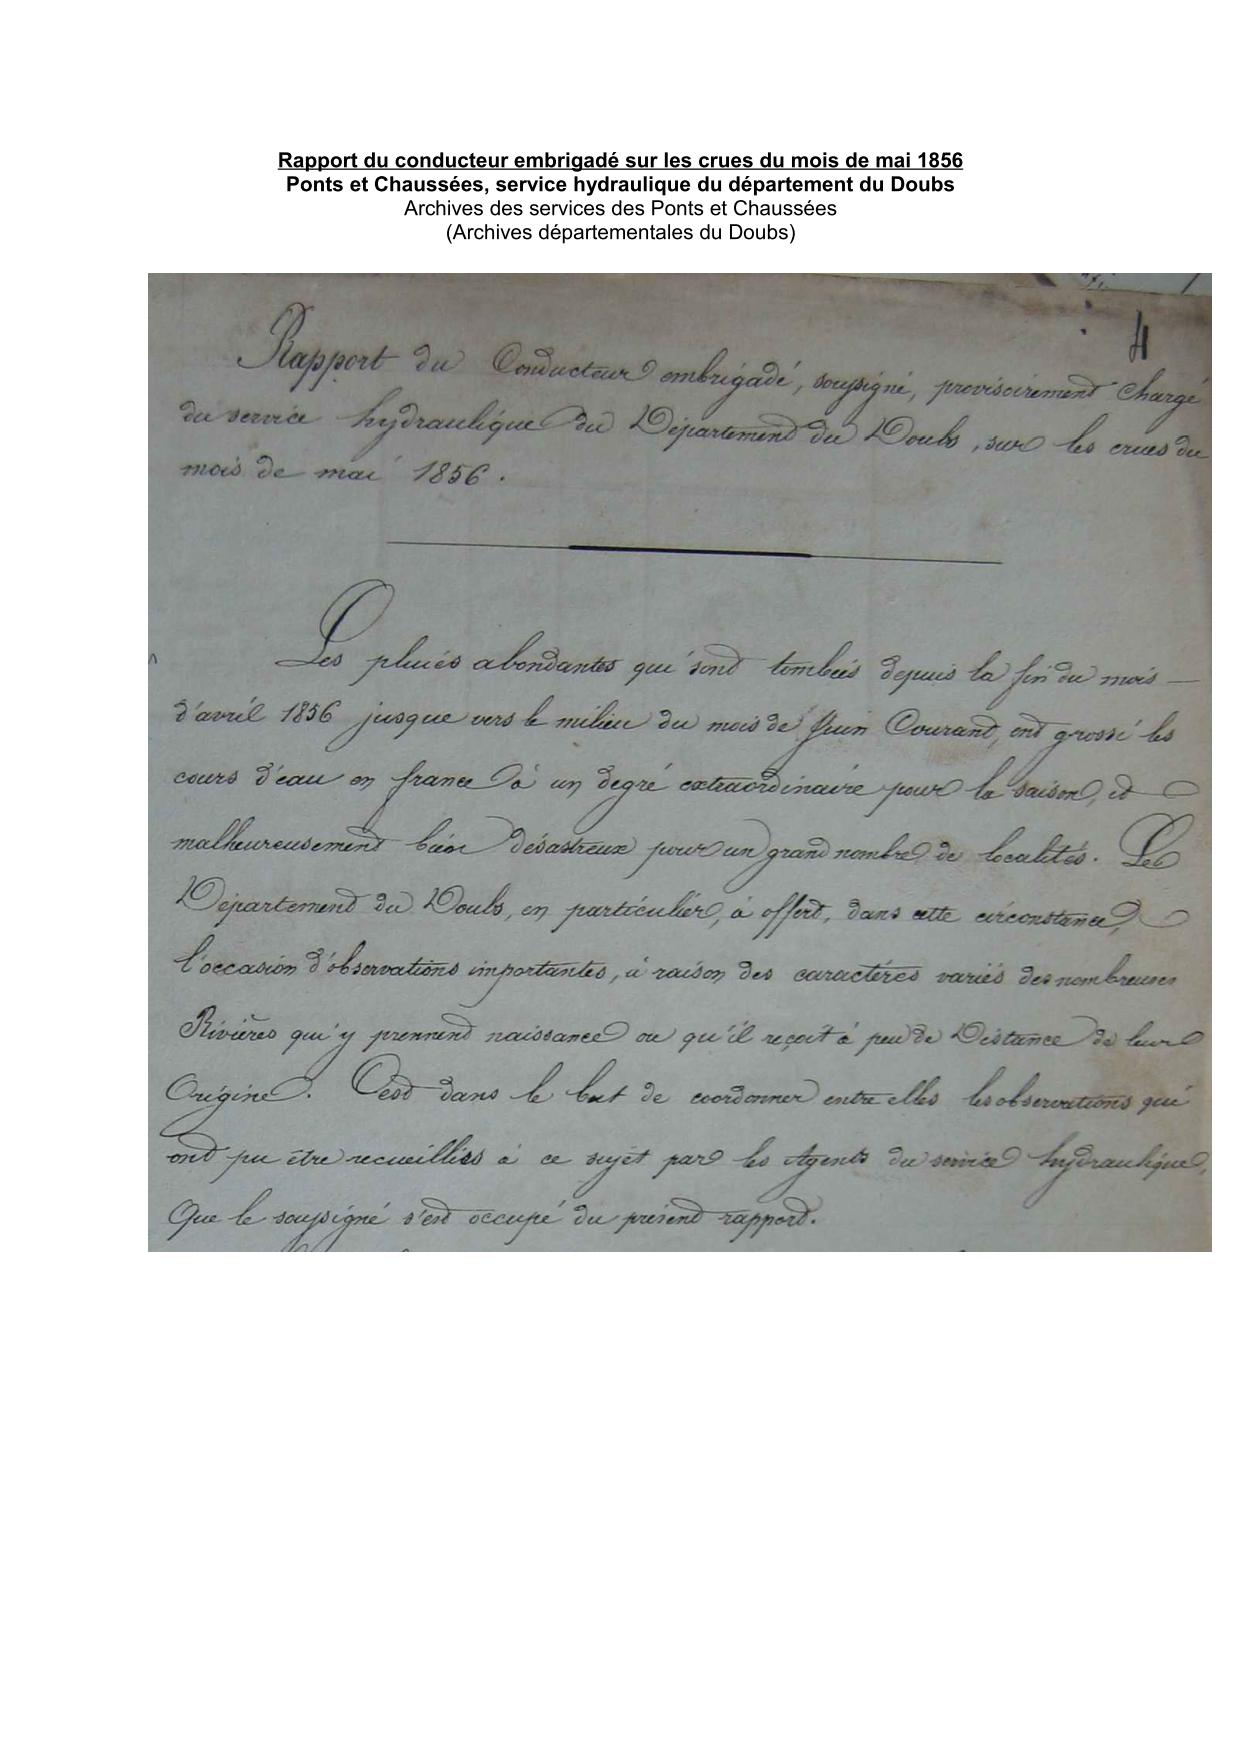 Rapport du conducteur embrigadé sur les crues du mois de mai 1856
Ponts et Chaussées, service hydraulique du département du Doubs
Archives des services des Ponts et Chaussées
(Archives départementales du Doubs)
4
Rapport du Conducteur embrigadé, soussigné, provisoirement chargé
du service hydraulique du Département du Doubs, sur les crues du
mois de mai 1856.
Les pluies abondantes qui sont tombées depuis la fin du mois
d'avril 1856 jusque vers le milieu du mois de Juin Courant, ont grossi les
cours d'eau en france à un degré extraordinaire pour la saison, et
malheureusement bien désastreux pour un grand nombre de localités. Le
Département du Doubs, en particulier, à offert, dans cette circonstance,
l'occasion d'observations importantes, à raison des caractères variés des nombreuses
Rivières qui y prennent naissance ou qu'il reçoit à peu de Distance de leur
Origine. C'est dans le but de coordonner entre elles les observations qui
ont pu être recueillies à ce sujet par les Agents du service hydraulique,
Que le soussigné s'est occupé du présent rapport.